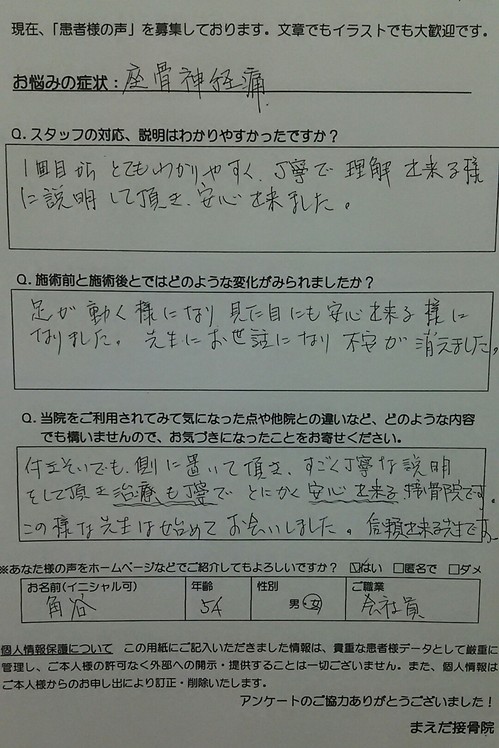 現在、「患者様の声」を募集しております。文章でもイラストでも大歓迎です。
お悩みの症状：座骨神経痛
Q. スタッフの対応、説明はわかりやすかったですか？
1回目から とてもわかりやすく、丁寧で 理解 出来る様
に説明して頂き、安心出来ました。
Q. 施術前と施術後とではどのような変化がみられましたか？
足が 動く 様に なり 見た目にも 安心 出来る 様に
なりました。 先生に お世話に なり 不安が 消えました。
Q. 当院をご利用されてみて気になった点や他院との違いなど、どのような内容
でも構いませんので、お気づきになったことをお寄せください。
付きそいでも、側に置いて頂き、すごく丁寧な説明
をして頂き 治療も丁寧で とにかく 安心出来る 接骨院です。
この様な先生は始めて お会いしました。信頼出来る先生です。
※あなた様の声をホームページなどでご紹介してもよろしいですか？ ☑はい □匿名で □ダメ
お名前(イニシャル可) 年齢 性別 ご職業
角谷 54 男・女 会社員
個人情報保護について この用紙にご記入いただきました情報は、貴重な患者様データとして厳重に
管理し、ご本人様の許可なく外部への開示・提供することは一切ございません。また、個人情報は
ご本人様からのお申し出により訂正・削除いたします。
アンケートのご協力ありがとうございました！
まえだ接骨院